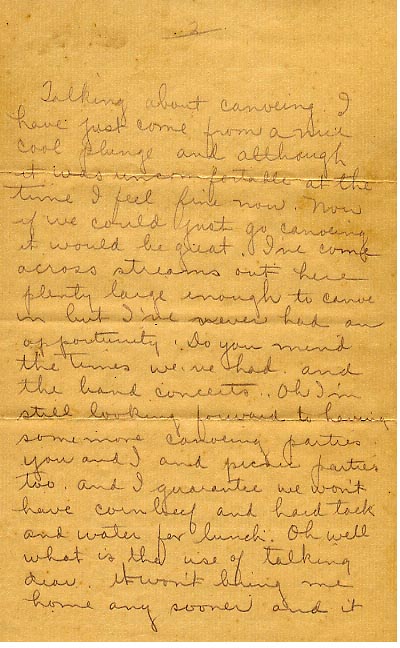 2
Talking about canoeing. I
have just come from a nice
cool plunge and although
it was uncomfortable at the
time I feel fine now. Now
if we could just go canoeing
it would be great. I've come
across streams out here
plenty large enough to canoe
in but I've never had an
opportunity. Do you mind
the times we've had. and
the band concerts. Oh I'm
still looking forward to having
some more canoeing parties
you and I and picnic parties
too. and I guarantee we won't
have corn beef and hard tack
and water for lunch. Oh well
what is the use of talking
dear. It won't bring me
home any sooner and it